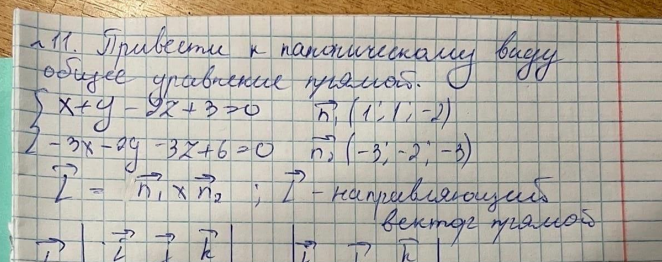 11. Привести к каноническому виду
общее уравнение прямой.
{ x+y-2z+3=0 n⃗₁ (1; 1; -2)
{ -3x-2y-3z+6=0 n⃗₂ (-3; -2; -3)
l⃗ = n⃗₁ × n⃗₂ ; l⃗ - направляющий
вектор прямой
i⃗ j⃗ k⃗